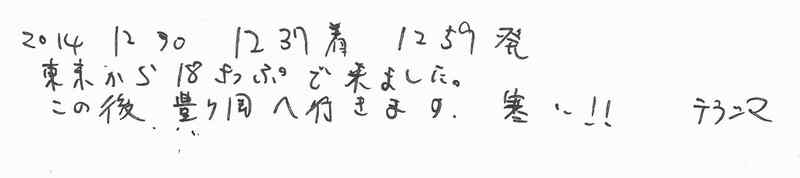 2014 12 30 12:37着 12:59発
東京から18きっぷで来ました。
この後、豊ケ岡へ行きます。寒い!! テラニマ